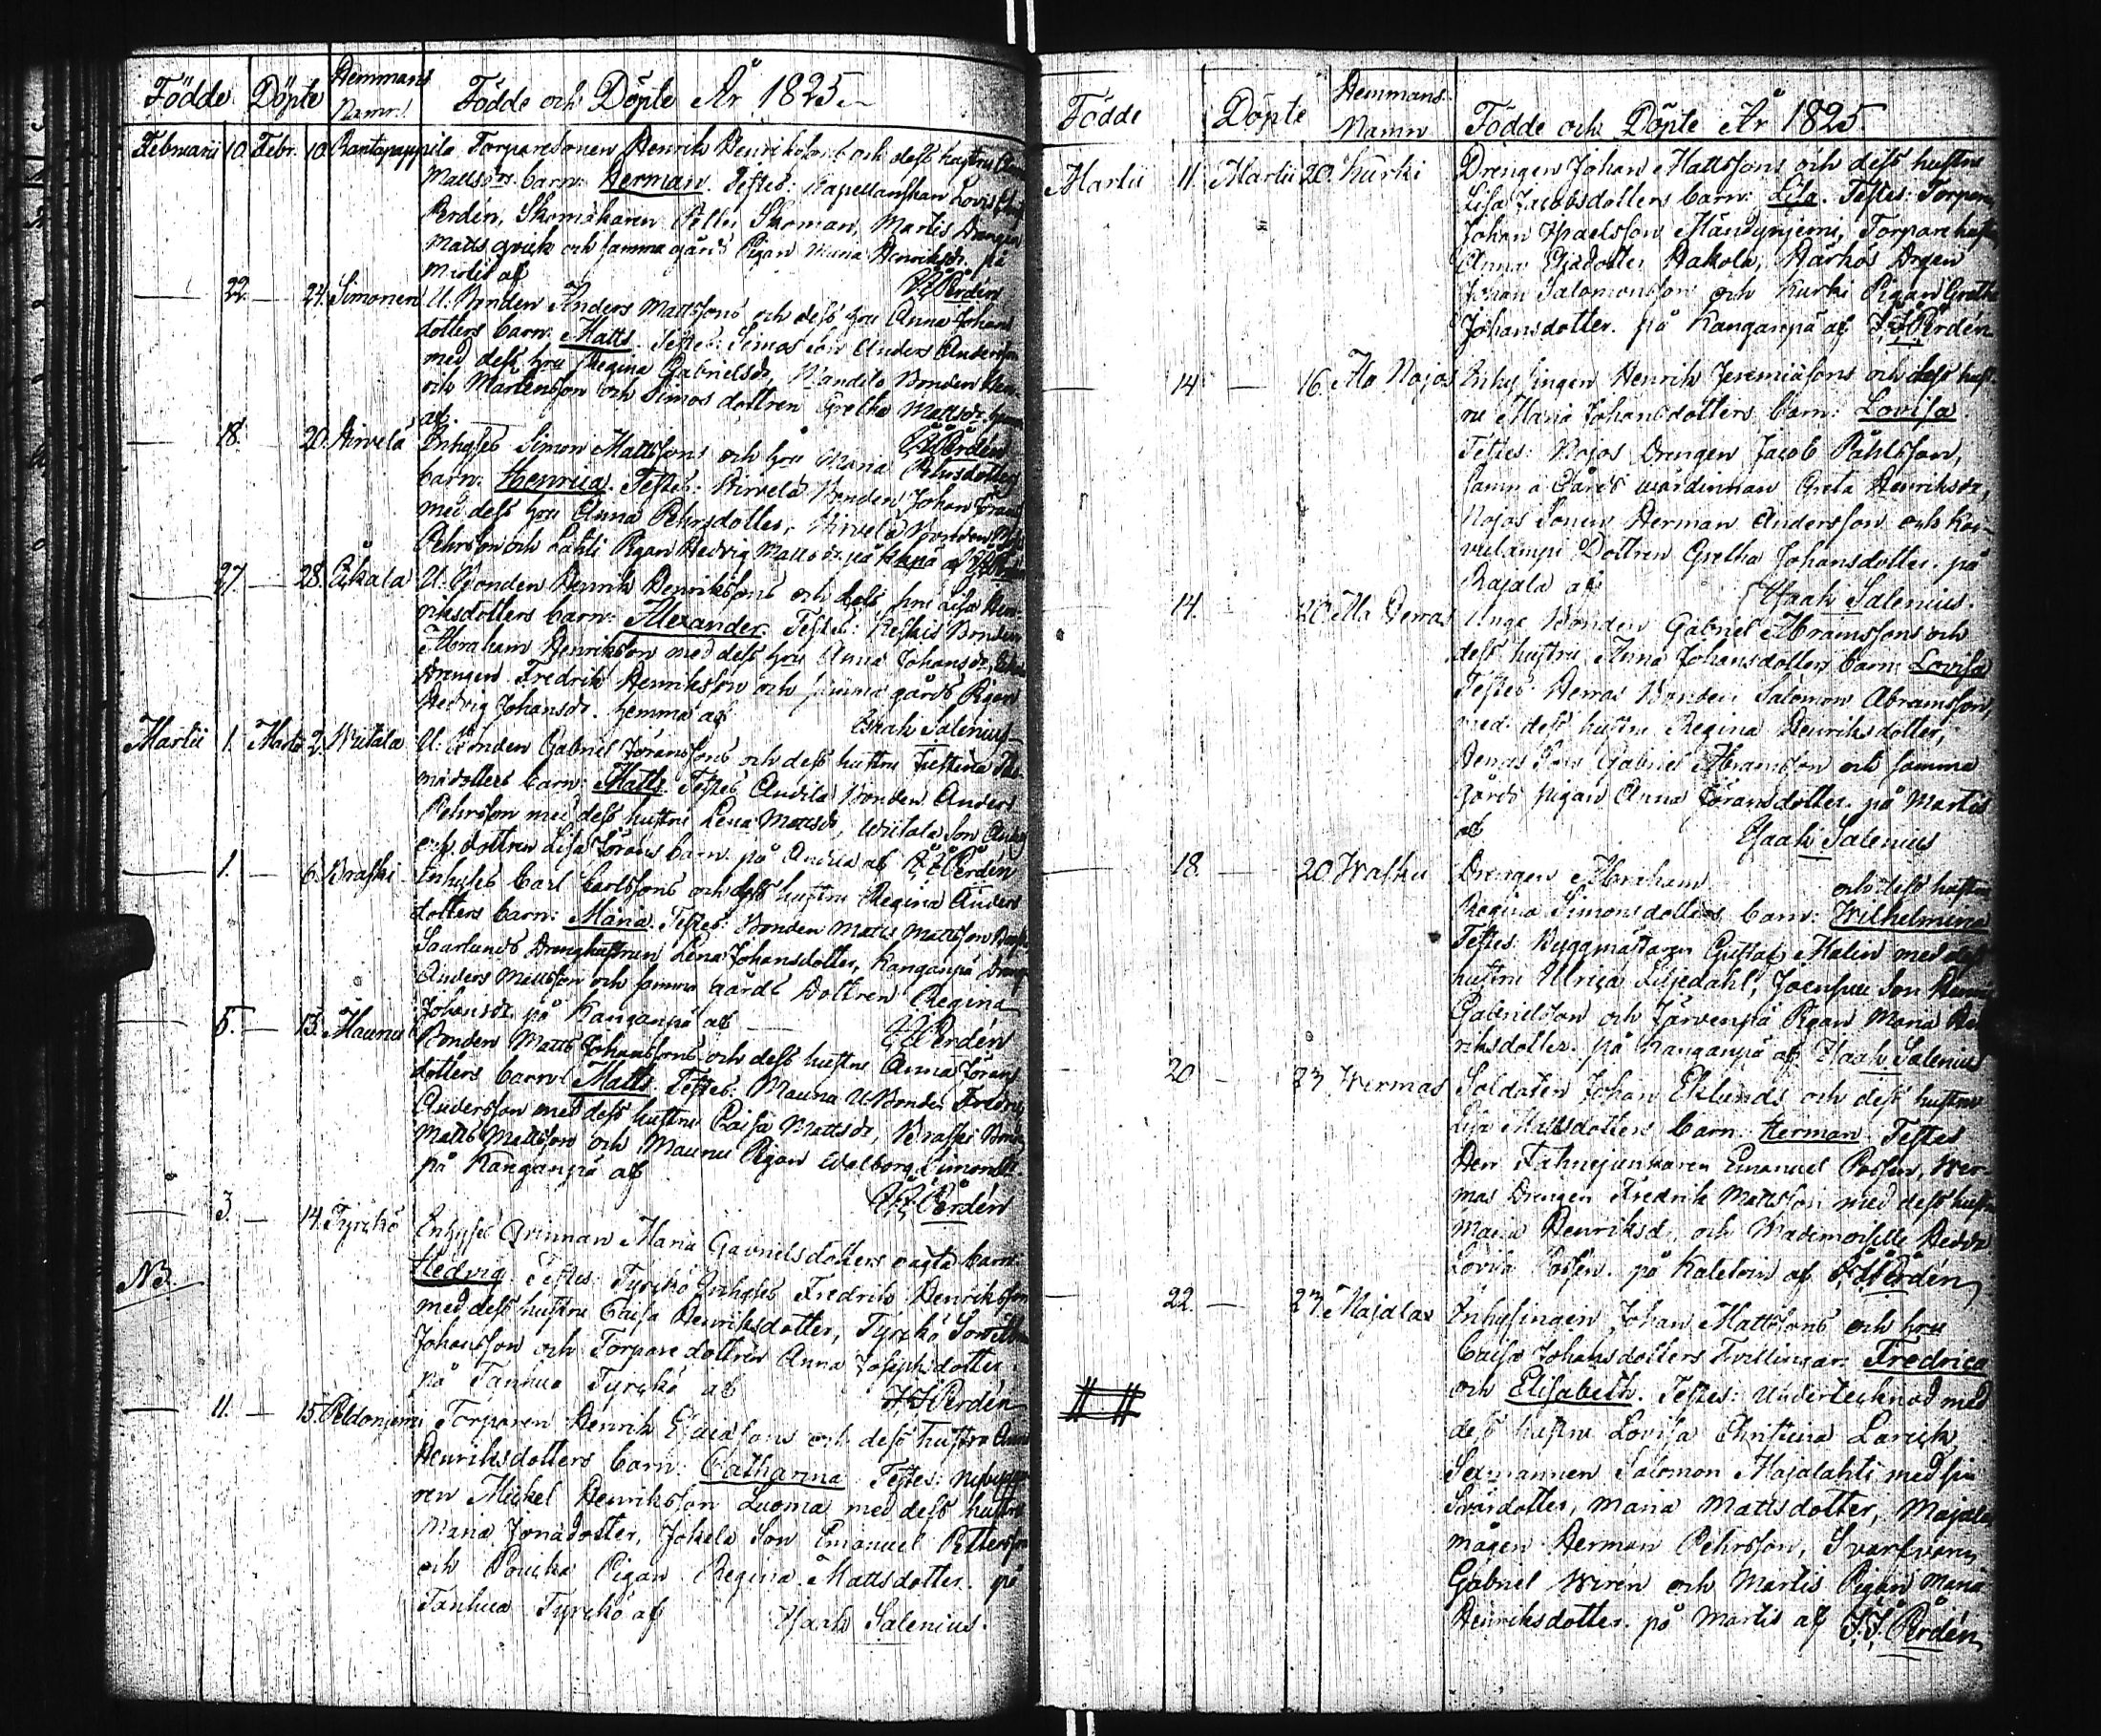 Födde Döpte Hemmans Namn Födde och Döpte År 1825
Februarii 10. Febr. 10 Rantapappila Torparesonen Henrik Henriksons och dess hustru
Mattsdrs barn: Herman. Testes: Kapellanskan Lovis
Perdén, Skomakaren Skoman, Martis Drengen
Matts och samma gårds Pigan Maria Henriksdr. på
Martis af Perdén
22. 24. Simonen U. Bonden Anders Mattssons och dess hru Anna Johans
dotters barn: Matts. Testes: Simos Son Anders Andersson
med dess hru Regina Gabrielsdr, Bonden
och Mårtensson och Simos dottren Gretha Mattsdr, hemma
af Perdén
18. 20. Hirvelä Inhyses Simon Mattssons och hru Maria Pehrsdotters
barn: Henrica. Testes: Hirvelä Bonden Johan
med dess hru Anna Pehrsdotter, Hirvelä Bonden
Pehrsson och Lahti Pigan Hedvig Mattsdr. på af
27. 28. U. Bonden Henrik Henrikssons och dess hru Lisa Hen-
riksdotters barn: Alexander. Testes: Bonden
Abraham Henriksson med dess hru Anna Johansdr,
Drengen Fredrik Henriksson och samma gårds Pigan
Hedvig Johansdr. hemma af Isaak Salenius
Martii 1. Martii 2. Wiitala U. Bonden Gabriel Jöranssons och dess hustru Justina
dotters barn: Matts. Testes Anders
Pehrsson med dess hustru Lena Mattsdr, Wiitala Son
och dottren Lisa Jörans barn. på af Perdén
1. 6. Kraski Inhyses Carl Carlssons och dess hustru Regina Anders
dotters barn: Maria. Testes: Bonden Matts Mattsson
Saarlunds Drenghustrun Lena Johansdotter, Kanganpä Dreng
Anders Mattsson och samma gårds Dottren Regina
Johansdr. på Kanganpä af Perdén
5. 13. Maunu Bonden Matts Johanssons och dess hustru Anna Jörans
dotters barn: Matts. Testes: Maunu U. Bonden Fredric
Andersson med dess hustru Caisa Mattsdr, Kraski
Matts Mattsson och Maunu Pigan Walborg
på Kanganpä af
Perdén
3. 14. Tyrckö Inhyses Qvinnan Maria Gabrielsdotters oägta barn
NB. Hedvig. Testes: Tyrckö Inhyses Fredrik Henriksson
med dess hustru Caisa Henriksdotter, Tyrckö Son
Johansson och Torpare dottren Anna Josephsdotter
på Tanhua Tyrckö af Perdén
11. 15. Peldoniemi Torparen Henrik Esaiassons och dess hustru Anna
Henriksdotters barn: Catharina. Testes:
ren Mickel Henriksson Luoma med dess hustru
Maria Jonædotter, Jokela Son Emanuel Pettersson
och Pigan Regina Mattsdotter. på
Tanhua Tyrckö af Isaak Salenius.
Födde Döpte Hemmans Namn Födde och Döpte År 1825.
Martii 11. Martii 20. Kurki Drengen Johan Mattssons och dess hustru
Lisa Jacobsdotters barn: Lisa. Testes: Torparen
Johan Israelsson Mändyniemi, Torpare hustru
Anna Hakola, Drgen
Johan Salomonsson och Kurki Pigan Gretha
Johansdotter. på Kanganpä af J. J. Perdén
14. 16. Ala Nojos Inhysingen Henrik Jeremiassons och dess hust-
ru Maria Johansdotters barn: Lovisa.
Testes: Nojos Drengen Jacob Påhlsson,
samma Gårds wärdinnan Greta Henriksdr,
Nojos Sonen Herman Andersson och
Dottren Gretha Johansdotter. på
Rajala af Isaak Salenius.
14. 20. Ala Unge Bonden Gabriel Abramssons och
dess hustru Anna Johansdotters barn: Lovisa
Testes: Bonden Salomon Abramsson,
med dess hustru Regina Henriksdotter,
Son Gabriel Abramsson och samma
gårds pigan Anna Jöransdotter. på Martis
af Isaak Salenius
18. 20 Drengen Abraham och dess hustru
Regina Simonsdotters barn: Wilhelmina
Testes: Byggmästaren Gustaf Malin med dess
hustru Ulrica Liljedahl, Joensuu Son
Gabrielsson och Järvenpä Pigan Maria Hen
riksdotter. på Kanganpä af Isaak Salenius
20 23 Wermas Soldaten Johan Eklunds och dess hustru
Lisa Mattsdotters barn: Herman. Testes
Herr Fahnejunkaren Emanuel Possen, Wer-
mas Drengen Fredrik Mattsson med dess hustru
Maria Henriksdr, och Mademoiselle
Lovisa Possen. på af Perdén
22. 23. Majalax Inhysingen Johan Mattssons och hru
Caisa Johansdotters Tvillingar: Fredrica
# # och Elisabeth. Testes: Undertecknad med
dess hustru Lovisa Christina
Sexmannen Salomon Majalahti med sin
Svärdotter, Maria Mattsdotter, Majala
mågen Herman Pehrsson, Svarfvaren
Gabriel Wirén och Martis Pigan Maria
Henriksdotter. på Martis af J. J. Perdén